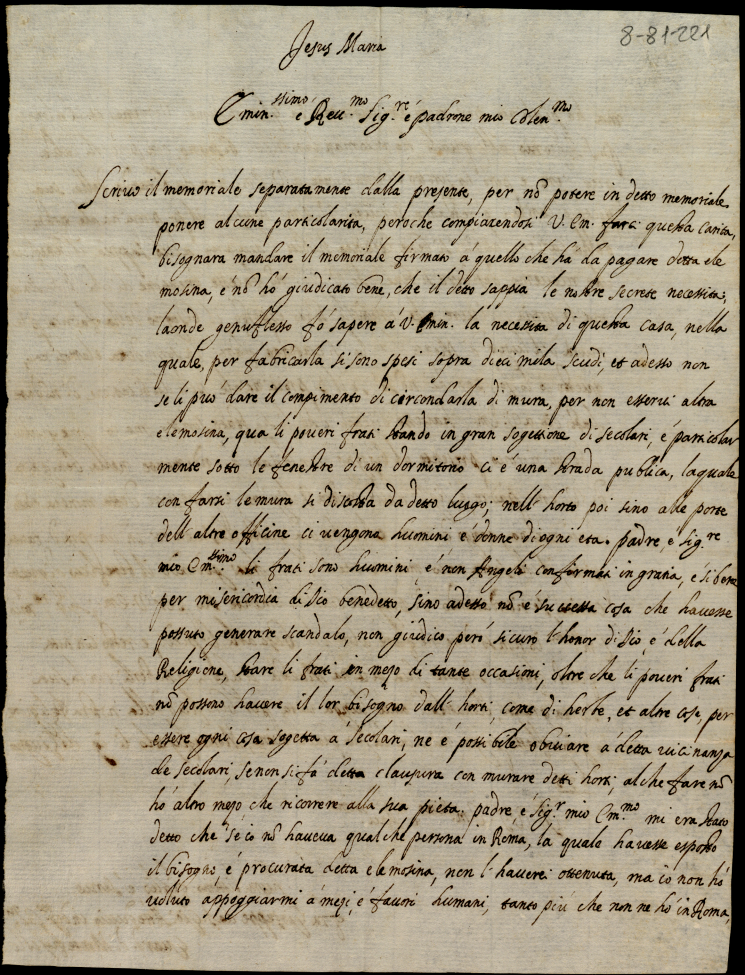 8-81-221
Jesus Maria
Emin.ssimo e Reu.mo Sig.re é padrone mio Colen.mo
Scriuo il memoriale separatamente dalla presente, per nõ potere in detto memoriale
ponere alcune particolarita, peroche compiacendosi V. Em. farci questa carita,
bisognara mandare il memoriale firmato á quello che ha da pagare detta ele
mosina, é nõ hó giudicato bene, che il detto sappia le nostre secrete necessita,
laonde genuflesso fó sapere á V. Emin. la necessita di questa casa, nella
quale, per fabricarla si sono spesi sopra dieci mila scudi, et adesso non
se li puó dare il compimento di circondarla di mura, per non esserui altra
elemosina, qua li poueri frati stando in gran sogettione di secolari, é particolar
mente sotto le fenestre di un dormitorio ci é una strada publica, laquale
con farsi le mura si discosta da detto luogo; nell' horto poi sino alle porte
dell' altre officine ci uengono huomini é donne di ogni eta. padre, e sig.re
mio Em.ssimo li frati sono huomini é non Angeli confirmati in gratia, é si bene
per misericordia di Dio benedetto, sino adesso nõ é successa cosa che hauesse
possuto generare scandalo, non giudico peró sicuro l'honor di Dio, é della
Religione, stare li frati in mezo di tante occasioni, oltre che li poueri frati
nõ possono hauere il lor bisogno dall' horti, come di herbe, et altre cose, per
essere ogni cosa sogetta á secolari, ne é possibile obuiare á detta uicinanza
de secolari, se non si fá detta clausura con murare detti horti, al che fare nõ
hó altro mezo che ricorrere alla sua pieta. padre, é sig.r mio Em.mo mi era stato
detto che se io nõ haueua qualche persona in Roma, la quale hauesse esposto
il bisogno, é procurata detta elemosina, non l'hauerei ottenuta, ma io non hó
uoluto appoggiarmi á mezi, é fauori humani, tanto piu che non ne hó in Roma,